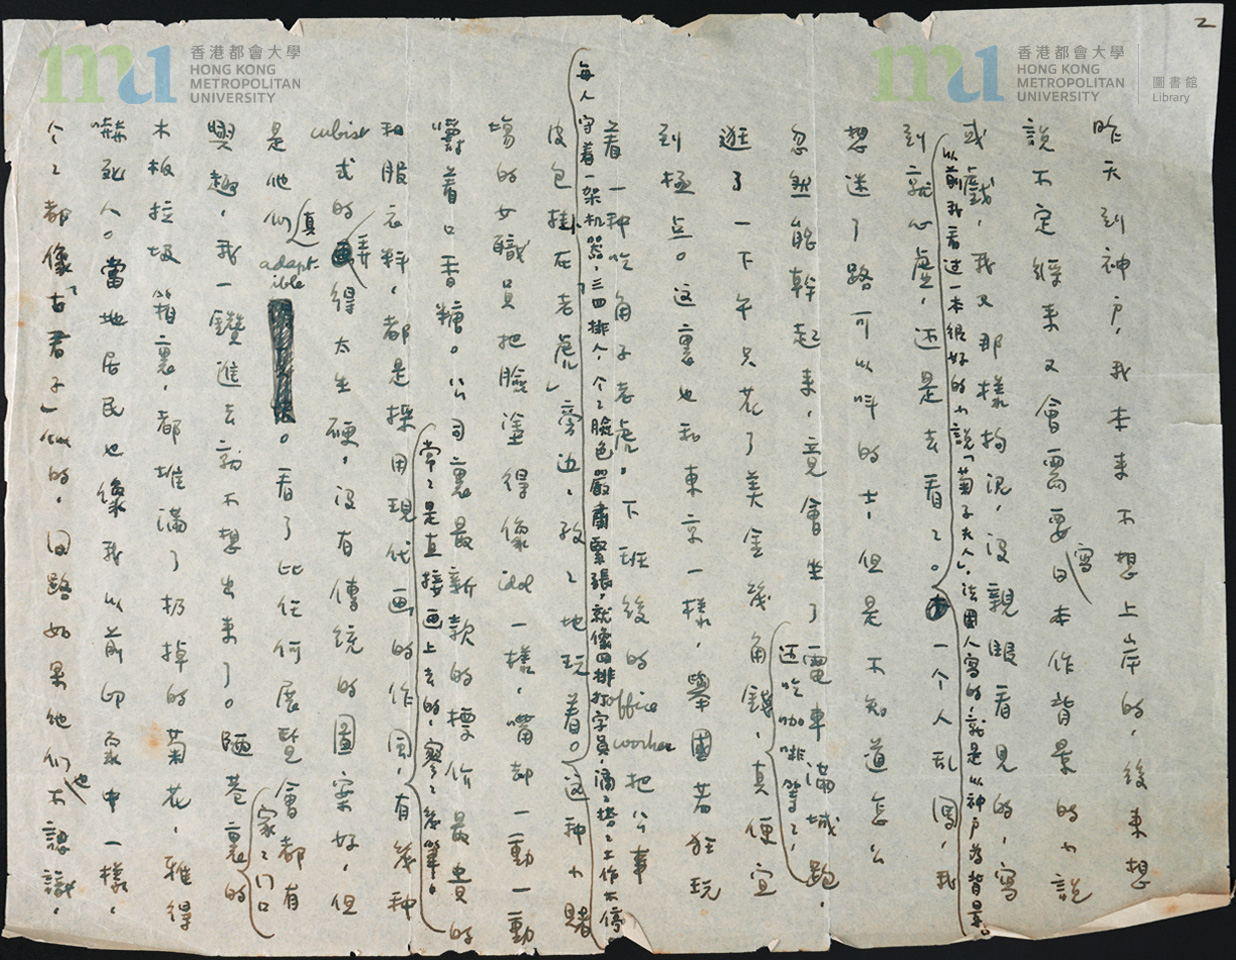 2
昨天到神戶，我本來不想上岸的，後來想
說不定將來又會需要寫日本作背景的小說
或戲，我又那樣拘泥，沒親眼看見的，寫
以前我看过一本很好的小說「菊子夫人」，法國人寫的，就是以神戶為背景。
到就心虛，还是去看看。一个人乱闖，我
想迷了路可以叫的士，但是不知道怎么
忽然能幹起來，竟會坐了電車滿城跑，
还吃咖啡等等，
逛了一下午只花了美金幾角錢，真便宜
到極点。这裏也和東京一樣，舉國若狂玩
着一种吃角子老虎。下班後的office worker把公事
每人守着一架机器，三四排人，个々臉色嚴肅緊張，就像四排打字員，滴々搭々工作不停。
皮包掛在「老虎」旁边，孜々地玩着。这种小賭
塲的女職員把臉塗得像idol一樣，嘴却一動一動
嚼着口香糖。公司裏最新款的標价最貴的
常々是直接画上去的，寥々幾筆。
和服衣料，都是採用現代画的作風，有幾种
cubist式的弄得太生硬，沒有傳統的圖案好，但
是他们真adaptible。看了比任何展覽會都有
興趣，我一鑽進去就不想出來了。陋巷裏的
家々门口
木板垃圾箱裏，都堆滿了扔掉的菊花，雅得
嚇死人。當地居民也像我以前印象中一樣，
个々都像「古君子」似的，问路如果他们也不認識，
香港都會大學
HONG KONG
METROPOLITAN
UNIVERSITY
香港都會大學
HONG KONG
METROPOLITAN
UNIVERSITY
圖書館
Library